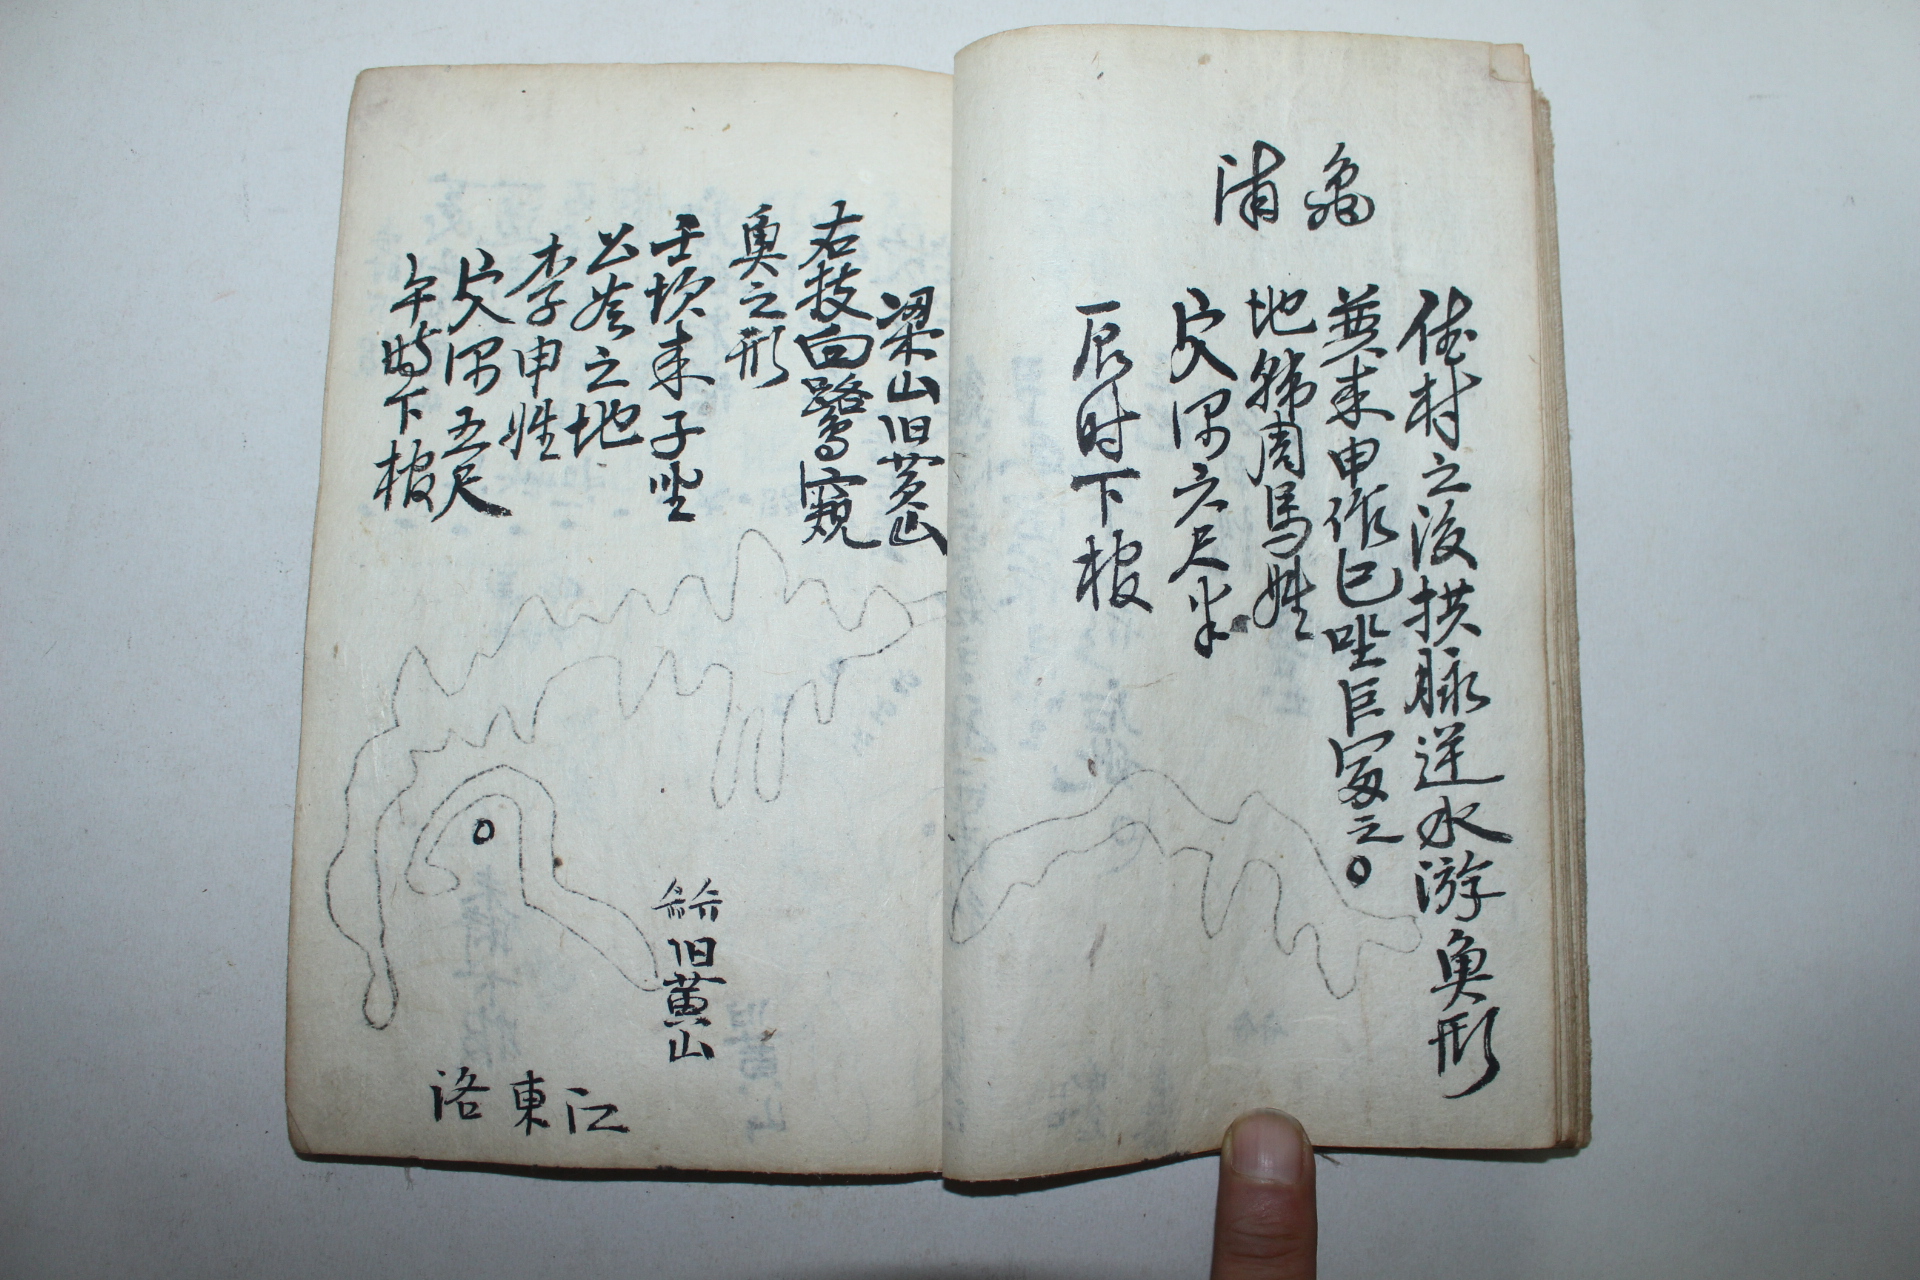 龜浦
村之後拱脉逆水游魚形
兼來申作巳坐巨富之
地 周馬姓
穴深六尺半
辰时下棺
梁山旧黄山
右枝白鷺窺
魚之形
壬坎來子坐
公 之地
李申姓
穴深五尺
午时下棺
旧黄山
洛東江